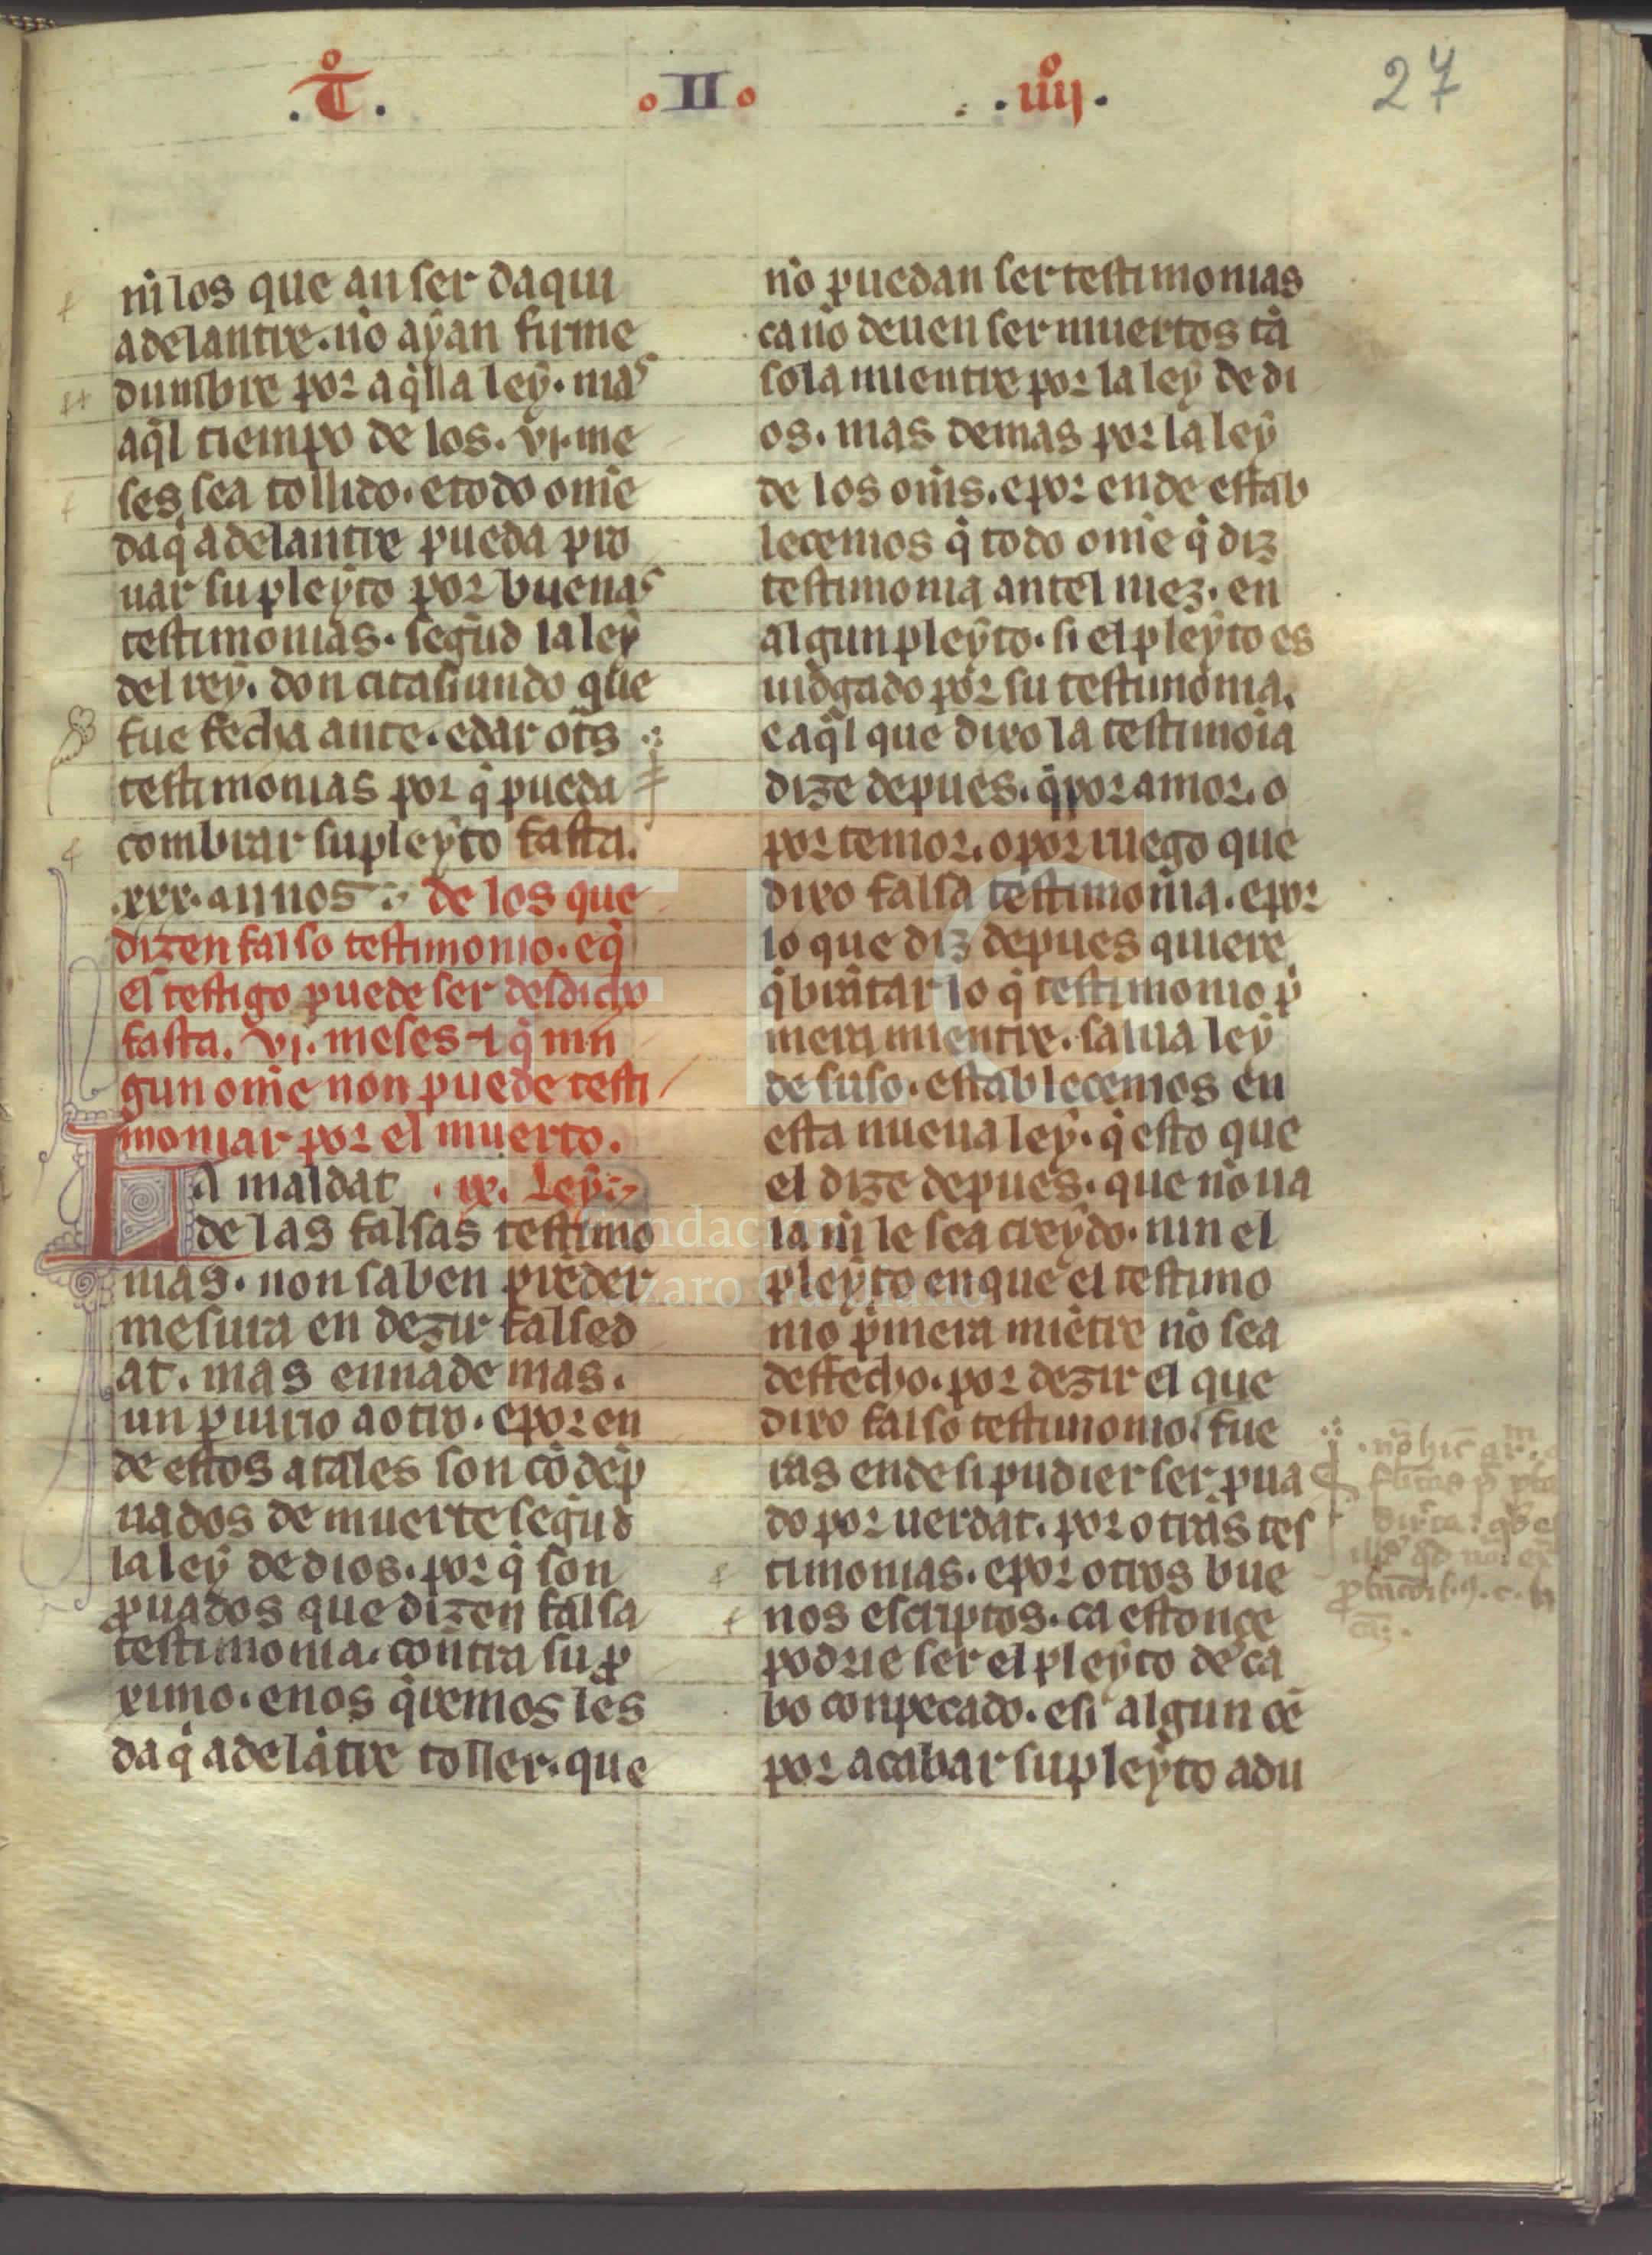 .T̊. II .iiijͦ.
27
nĩ los que an ser daqui
adelantre. nõ ayan firme
dumbre por aq̃lla ley. mas
aq̃l tiempo de los. vj. me
ses sea tollido. e todo om̃e
daq̃ adelantre pueda pro
uar su pleyto por buenas
testimonias. segũd la ley
del rey. don citasiundo que
fue fecha ante. e dar otr̃s
testimonias por q̃ pueda
combrar su pleyto fasta.
.xxx. annos de los que
dizen falso testimonio. e q̃
el testigo puede ser desdicho
fasta. vj. meses ⁊ q̃ nin
gun om̃e non puede testi
moniar por el muerto.
La maldat .ix. Ley
de las falsas testimo
nias. non saben prẽder
mesura en dezir falsed
at. mas ennade mas.
un piurio a otro. e por en
de estos atales son cõdẽp
nados de muerte segũd
la ley de dios. por q̃ son
ꝓuados que dizen falsa
testimonia. contra su ꝓ
ximo. e nos q̃remos les
daq̃ adelãtre toller. que
nõ puedan ser testimonias
ca nõ deuen ser muertos tã
sola mientre por la ley de di
os. mas demas por la ley
de los om̃s. e por ende estab
lecemos q̃ todo om̃e q̃ diz
testimonia antel iuez. en
algun pleyto. si el pleyto es
iudgado por su testimonia.
e aq̃l que dixo la testimoĩa
dize depues. q̃ por amor. o
por temor. o por ruego que
dixo falsa testimonia. e por
lo que diz depues quiere
q̃brãtar lo q̃ testimonio p̃
mera mientre. salua ley
de suso. establecemos en
esta nueua ley. q̃ esto que
el dize depues. que nõ ua
la nj̃ le sea creydo. nin el
pleyto en que el testimo
nio p̃mera miẽtre nõ sea
desfecho. por dezir el que
dixo falso testimonio. fue
ras ende si pudier ser ꝓua
do por uerdat. por otras tes
timonias. e por otros bue
nos escriptos. ca estonçe
podrie ser el pleyto de ca
bo conpecado. e si algun õe
por acabar su pleyto adu